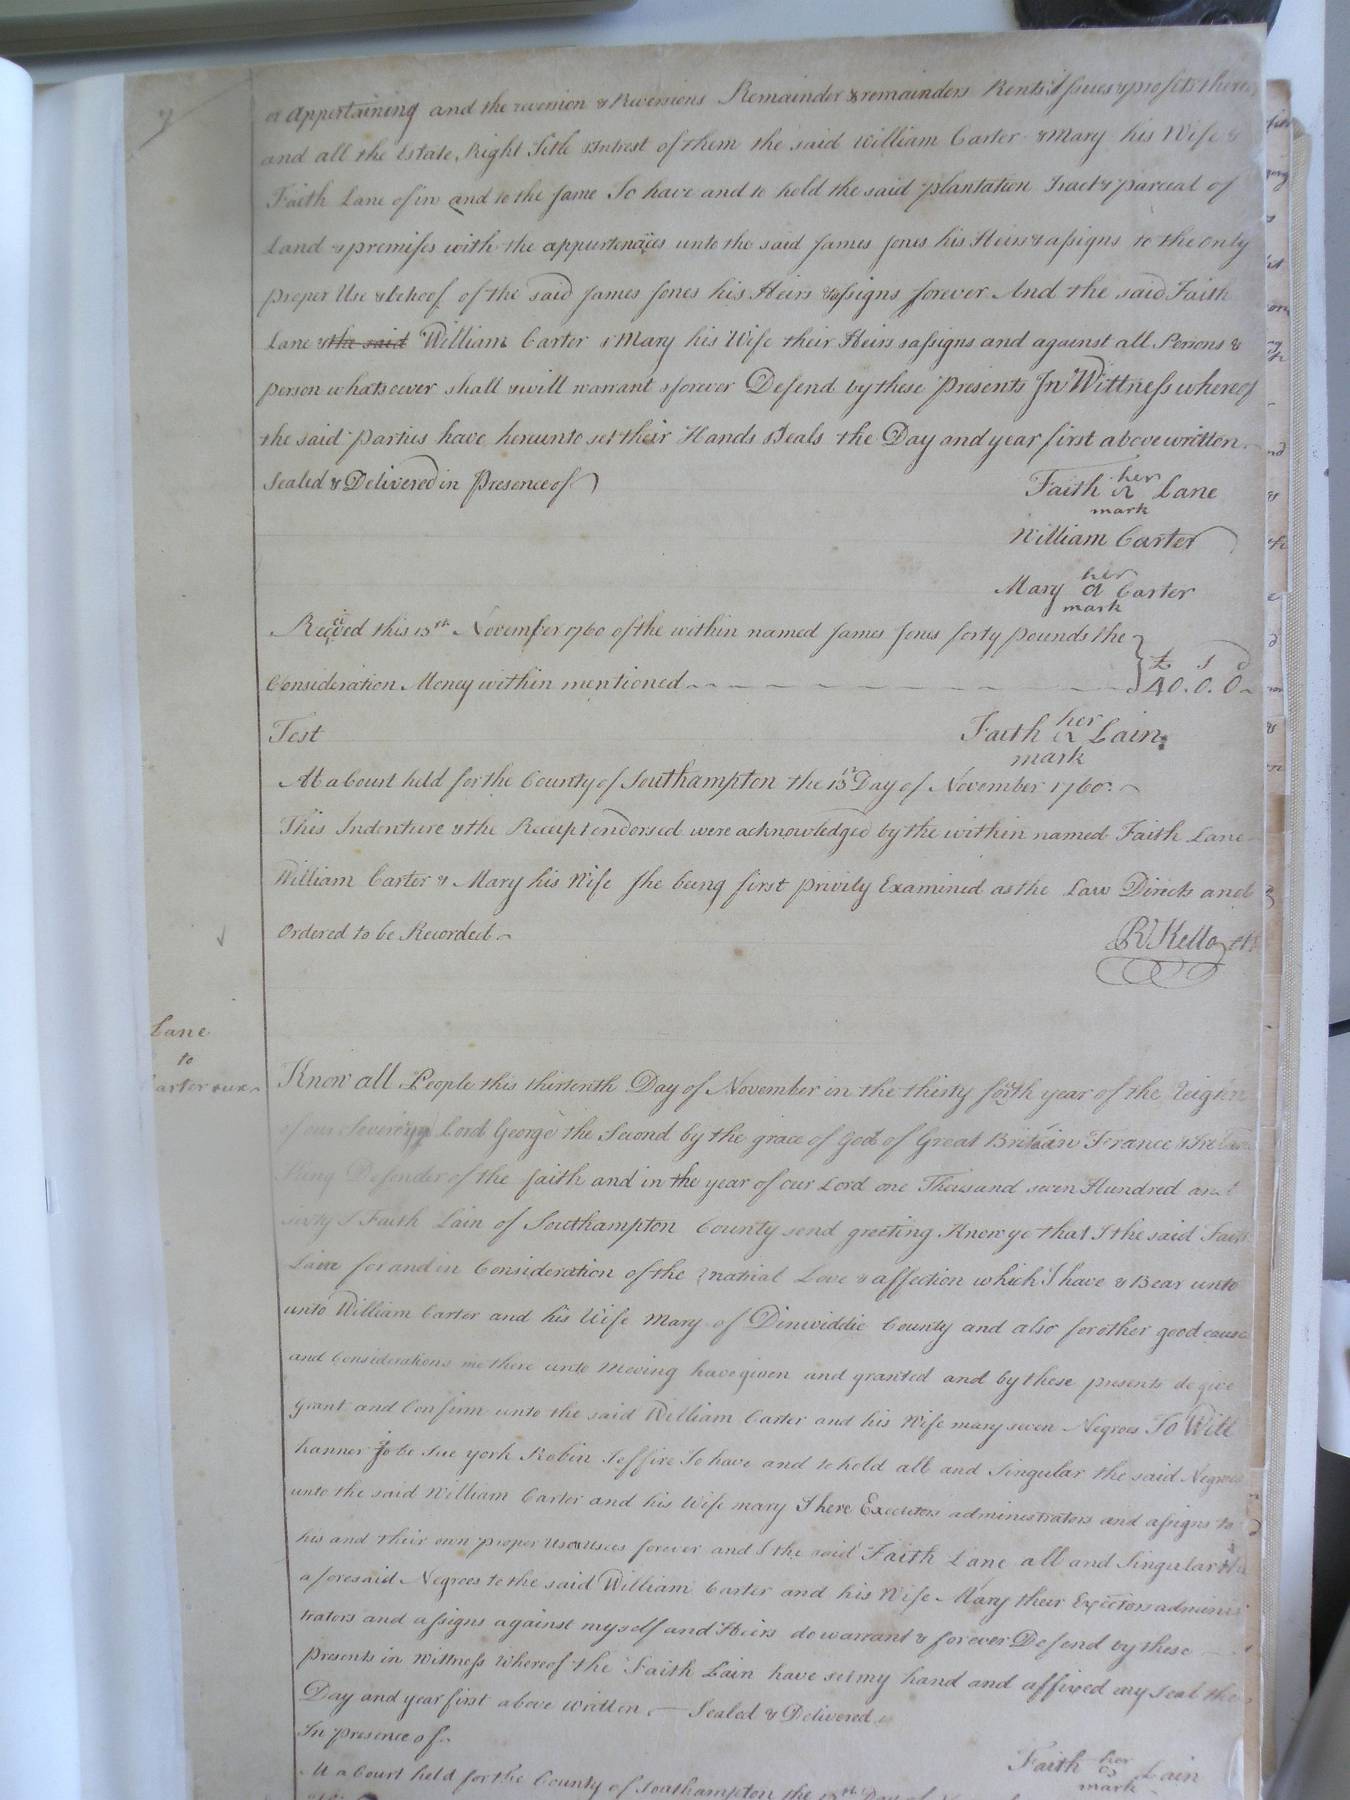 or Appertaining and the reversion & Reversions Remainder & remainders Rents Issues & profits thereof
and all the Estate Right Title & Intrest of them the said William Carter & Mary his Wife &
Faith Lane of in and to the same To have and to hold the said plantation Tract & parceal of
Land & premises with the appurtenances unto the said James Jones his Heirs & assigns to the only
proper Use & behoof of the said James Jones his Heirs & assigns forever And the said Faith
Lane & the said William Carter & Mary his Wife their Heirs & assigns and against all Persons &
person whatsoever shall & will warrant & forever Defend by these Presents In Wittness whereof
the said Parties have hereunto set their Hands & Seals the Day and year first above written
Sealed & Delivered in Presence of
Faith her Lane
mark
William Carter
Mary her Carter
mark
Received this 13th November 1760 of the within named James Jones forty pounds the
Consideration Money within mentioned
£ s d
40. 0. 0
Test
Faith her Lain
mark
At a Court held for the County of Southampton the 13th Day of November 1760
This Indenture & the Receipt endorsed were acknowledged by the within named Faith Lane
William Carter & Mary his Wife she being first privily Examined as the Law Directs and
Ordered to be Recorded
R Kello
Lane
to
Carter & ux
Know all People this thirtenth Day of November in the thirty forth year of the Reign
of our Sovereign Lord George the Second by the grace of God of Great Britain France & Ireland
King Defender of the faith and in the year of our Lord one Thousand seven Hundred and
sixty I Faith Lain of Southampton County send greeting Know ye that I the said Faith
Lain for and in Consideration of the natrial Love & affection which I have & Bear unto
unto William Carter and his Wife Mary of Dinwiddie County and also for other good cause
and Considerations me there unto moving have given and granted and by these presents do give
grant and Confirm unto the said William Carter and his Wife mary seven Negroes To Witt
hanner Jobe Sue york Robin To have and to hold all and Singular the said Negroes
unto the said William Carter and his Wife mary There Executors administrators and assigns to
his and their own proper Use & uses forever and I the said Faith Lane all and Singular the
aforesaid Negroes to the said William Carter and his Wife Mary their Exectors adminis
trators and assigns against myself and Heirs do warrant & forever Defend by these
presents in Wittness Whereof the Faith Lain have set my hand and affixed my seal the
Day and year first above written — Sealed & Delivered
In presence of
Faith her Lain
mark
At a Court held for the County of Southampton the 13th Day of